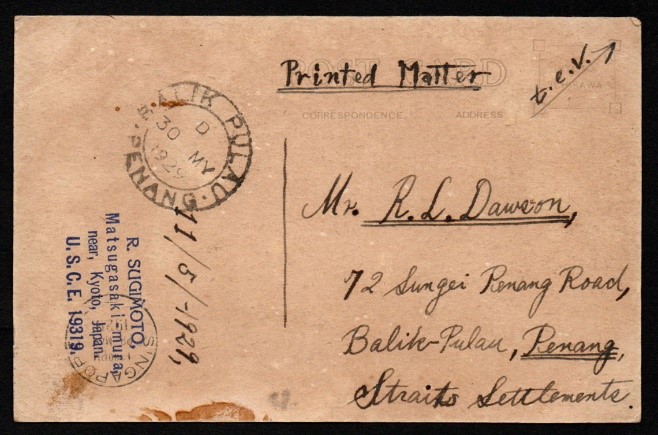 Printed Matter
POST CARD
t.c.v.
CORRESPONDENCE
ADDRESS
BALIK PULAU
D
30 MY
1929
PENANG
Mr. R. L. Dawson,
72 Sungei Penang Road,
Balik-Pulau, Penang,
Straits Settlements.
11/5/-1929,
R. SUGIMOTO,
Matsugasaki-mura,
near, Kyoto, Japan.
U. S. C. E. 19319.
SINGAPORE